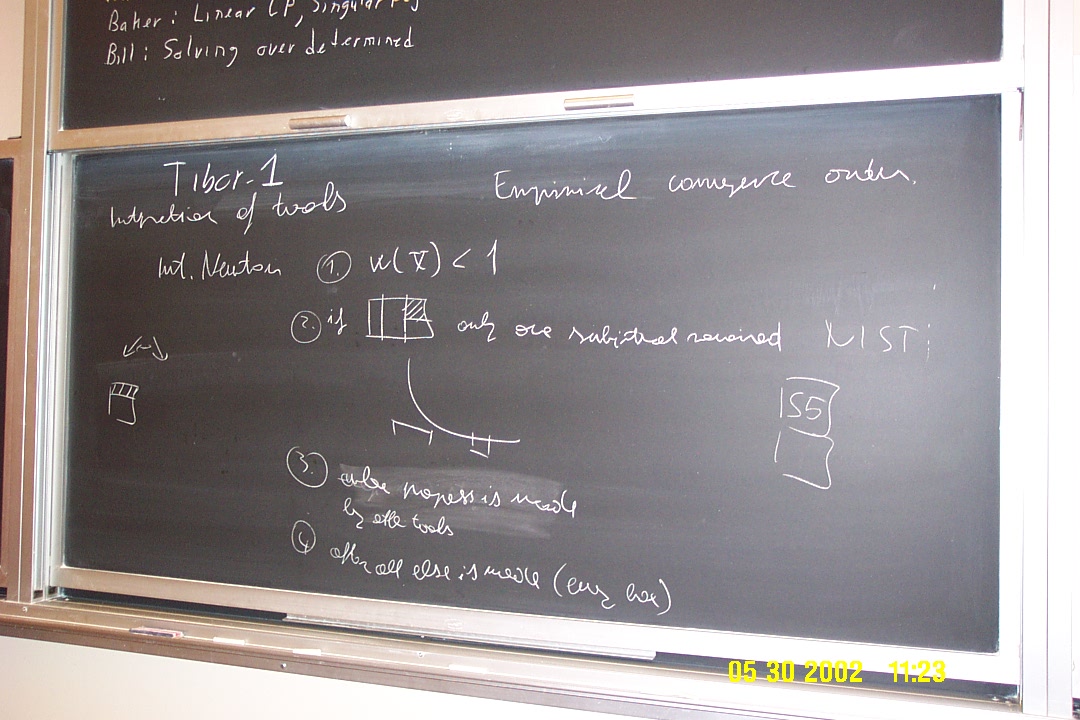 Baker: Linear LP, Singular
Bill: Solving over determined
Tibor-1
of tools
Empirical convergence order
Int. Newton ① w(X) < 1
② if only one required NIST:
S5
③ progress is made
by other tools
④ after all else is made (every box)
05 30 2002 11:23